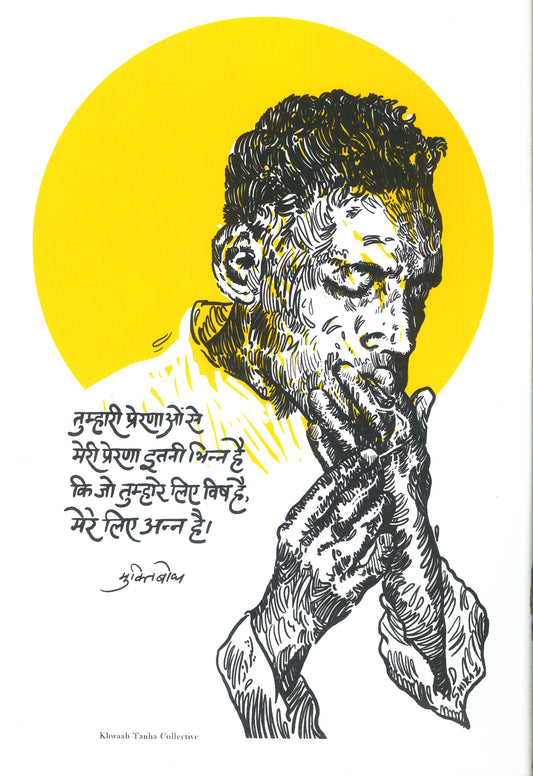 तुम्हारी प्रेरणाओं से
मेरी प्रेरणा इतनी भिन्न है
कि जो तुम्हारे लिए विष है,
मेरे लिए अन्न है।
मुक्तिबोध
Khwaab Tanha Collective